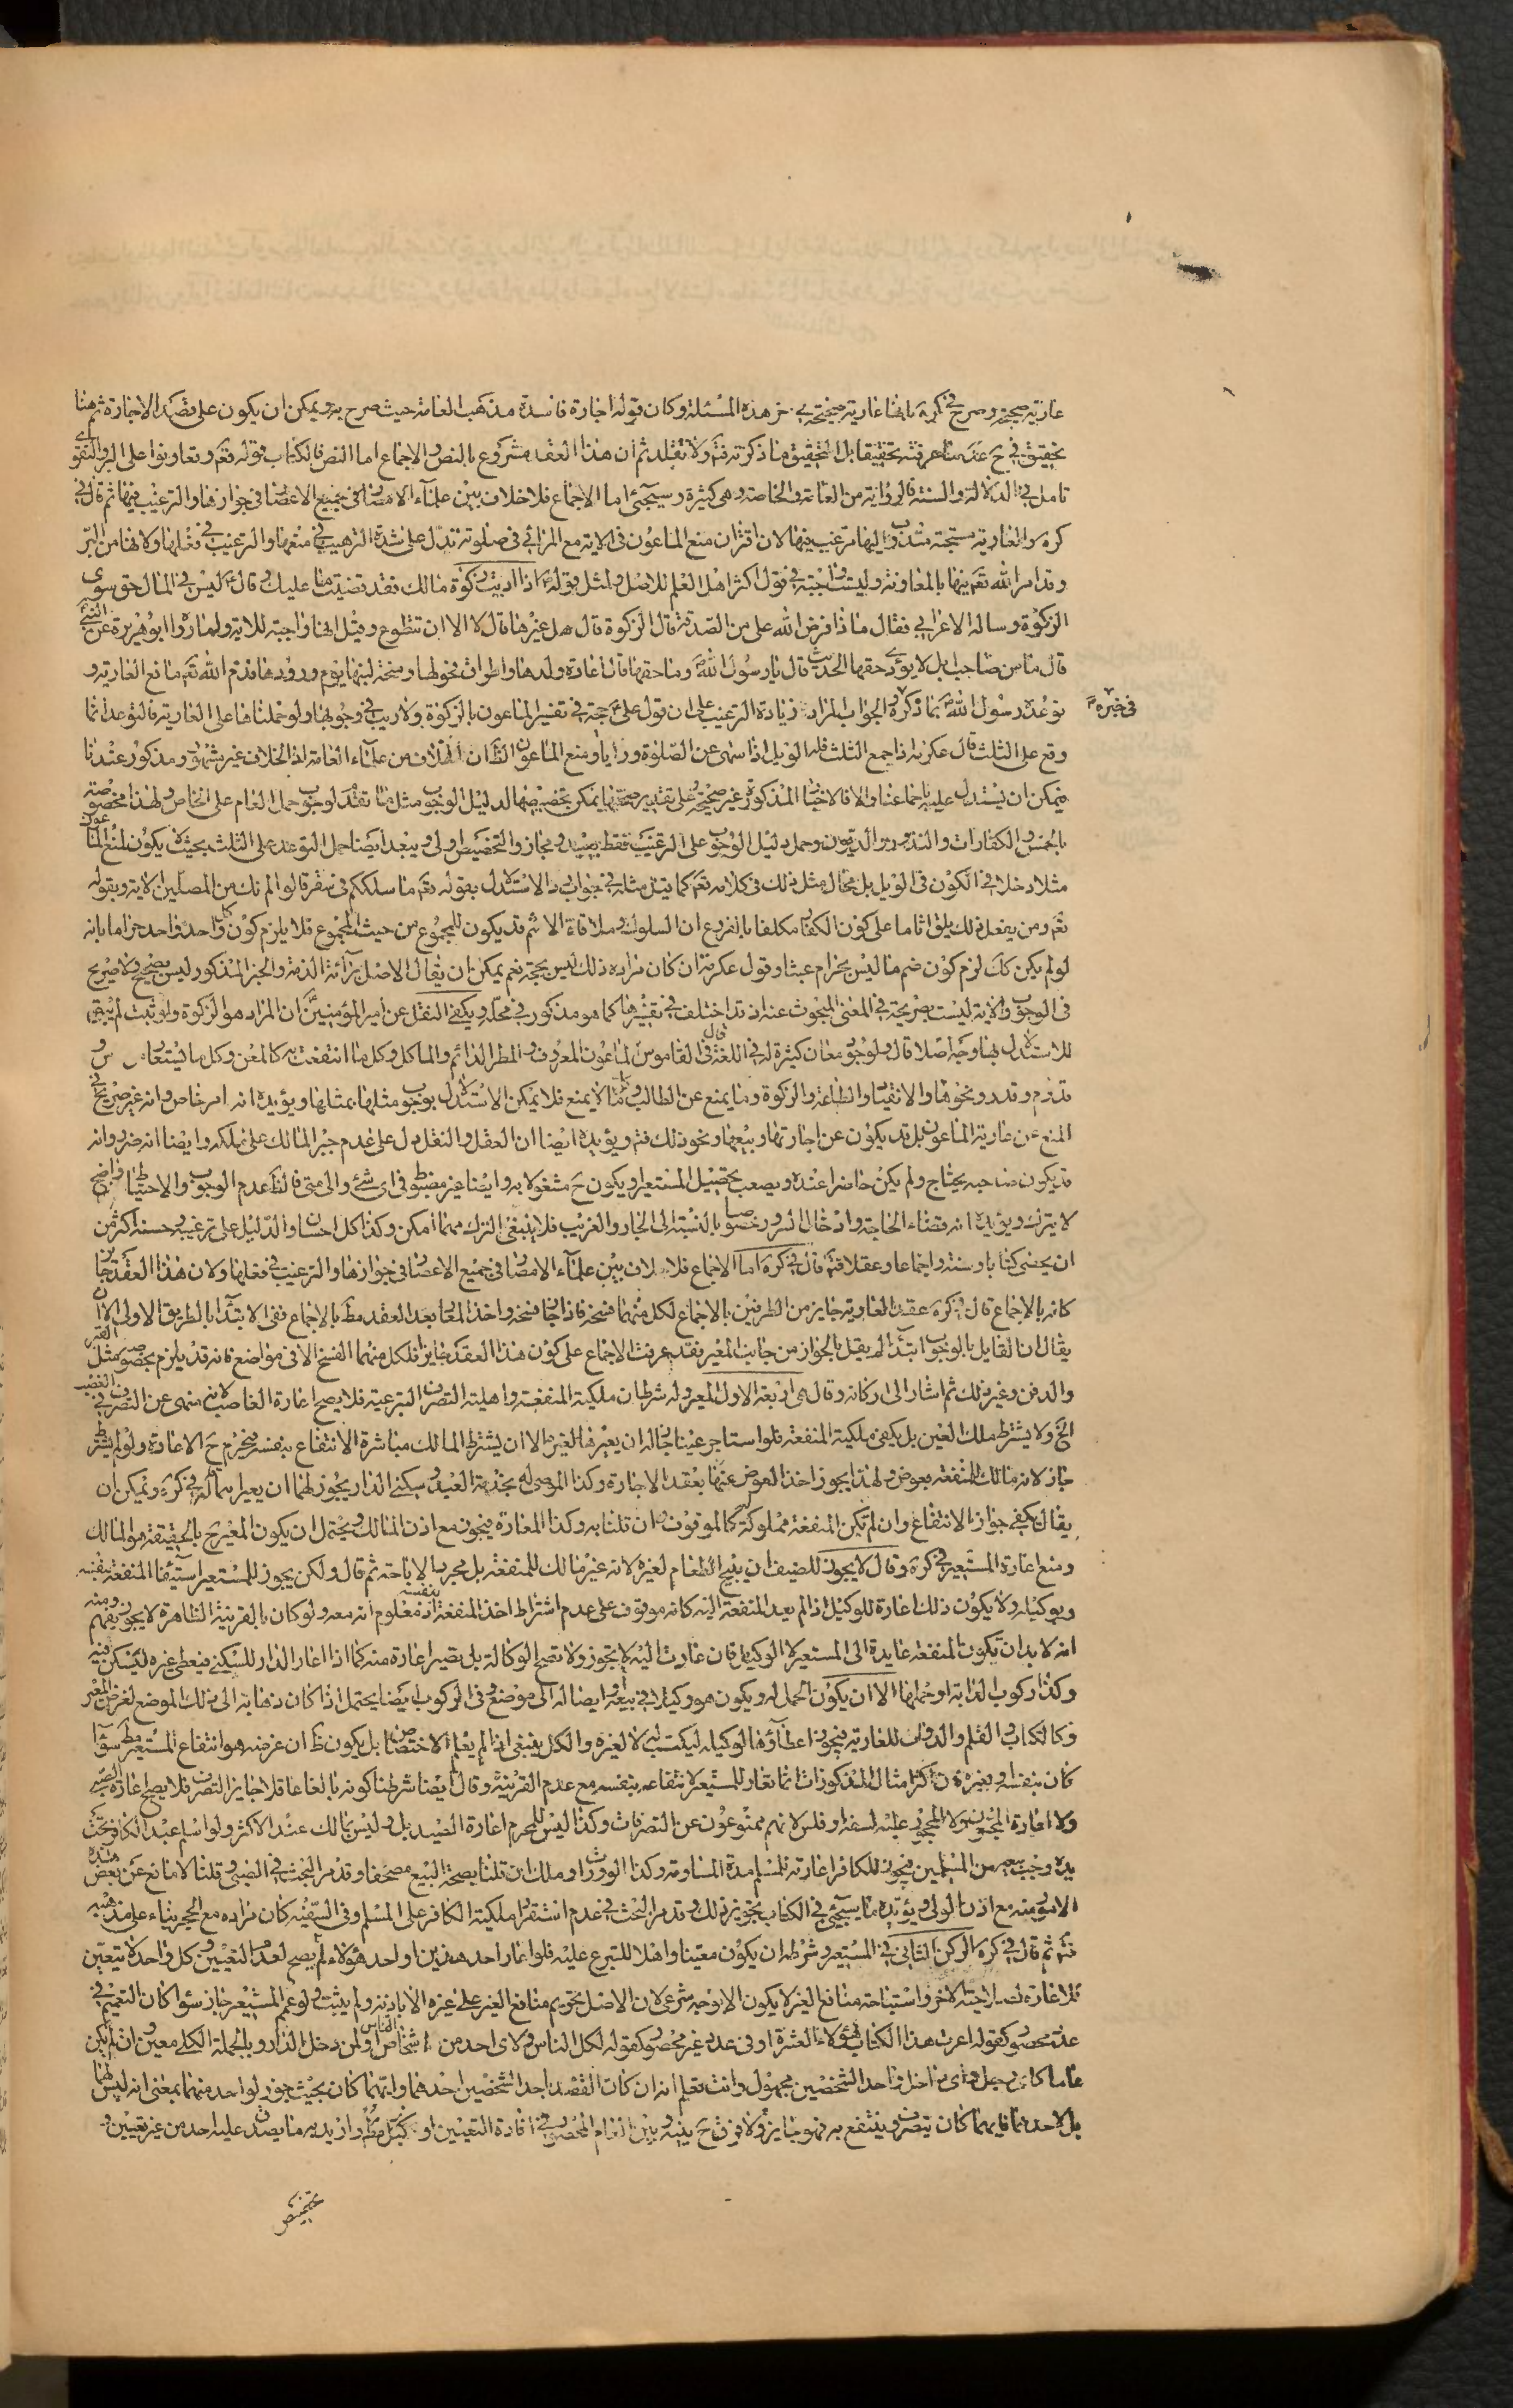 عارية صحيحة وصرح في كره بانها عارية صحيحة في هذه المسئلة وكان قوله اجارة فاسدة مذهب العامة حيث صرح به ويمكن ان يكون على قصد الاجارة ثم هنا
تحقيق في ح عند ما عرفته تحقيقا بل التحقيق ما ذكرته فتم ولا تقلد ثم ان هذا العقد مشروع بالنص والاجماع اما النص فالكتاب قوله تعم وتعاونوا على البر والتقوى
تامل في الدلالة والسنة فالرواية من العامة والخاصة وهى كثيرة وسيجئ اما الاجماع فلا خلاف بين علماء الامصار في جميع الاعصار في جوازها والترغيب فيها ثم قال في
كره والعارية مستحبة مندوب اليها مرغب فيها لان اقتران منع الماعون في الاية مع المرائي في صلوته تدل على شدة الترهيب في منعها والترغيب في فعلها ولانها من البر
وقد امر الله تعم فيها بالمعاونة وليست واجبة في قول اكثر اهل العلم للاصل ولمثل قوله اذا اديت زكوة مالك فقد قضيت ما عليك وقال ليس في المال حق سوى
الزكوة وساله الاعرابي فقال ماذا فرض الله على من الصدقة قال الزكوة قال هل غيرها قال لا الا ان تتطوع وقيل انها واجبة للاية ولما رواه ابو هريرة عن النبي
قال ما من صاحب ابل لا يؤدى حقها الحديث قال يا رسول الله وما حقها قال اعارة دلوها واطراق فحولها ومنحة لبنها يوم ورودها فذم الله تعم مانع العارية و
توعده رسول الله بما ذكره في خبره والجواب المراد زيادة الترغيب على ان قول على حجة في تفسير الماعون بالزكوة ولا ريب في وجوبها ولو حملناها على العارية فالتوعد انما
وقع على الثلث قال عكرمة اذا جمع الثلث فله الويل اذا سهى عن الصلوة ورايا ومنع الماعون الظ ان الخلاف من علماء العامة اذ الخلاف غير مشهور ومذكور عندنا
فيمكن ان يستدل عليه باجماعنا والا فالاخبار المذكورة غير صحيحة وعلى تقدير صحتها يمكن تخصيصها لدليل الوجوب مثل ما تقدم لوجوب حمل العام على الخاص ولهذا مخصوصة
بالخمس والكفارات والنذور والديون وحمل دليل الوجوب على الترغيب فقط بعيد ومجاز والتخصيص اولى ويبعد ايضا حمل التوعد على الثلث بحيث لا يكون لمنع الماعون
مثلا دخلا في الكون في الويل بل محال مثل ذلك في كلامه تعم كما قيل مثله في جواب الاستدلال بقوله تعم ما سلككم في سقر قالوا لم نك من المصلين الاية وبقوله
تعم ومن يفعل ذلك يلق اثاما على كون الكفار مكلفا بالفروع ان السلوك وملاقاة الاثم قد يكون للمجموع من حيث المجموع فلا يلزم كون كل واحد واحد حراما بانه
لو لم يكن كك لزم كون ضم ما ليس بحرام عبثا وقول عكرمة ان كان مراده ذلك ليس بحجة نعم يمكن ان يقال الاصل براءة الذمة والخبر المذكور ليس بصحيح ولا صريح
في الوجوب والاية ليست صريحة في المعنى المبحوث عنه اذ قد اختلف في تفسيرها كما هو مذكور في محله ويكفى النقل عن امير المؤمنين ان المراد هو الزكوة ولو ثبت لم يبق
للاستدلال بها وجه اصلا قال ولوجود معان كثيرة له في اللغة قال في القاموس الماعون المعروف والمطر الماء والماكل وكل ما انتفعت به كالمعن وكل ما يستعار من
قدوم وقدر ونحوها والانقياد والطاعة والزكوة وما يمنع عن الطالب وما لا يمنع فلا يمكن الاستدلال بوجوب مثلها بمثلها ويؤيده انه امر خاص وانه غير صريح في
المنع عن عارية الماعون بل قد يكون عن اجارتها وبيعها ونحو ذلك فتم ويؤيده ايضا ان العقل والنقل دل على عدم جبر المالك على ملكه وايضا انه ضرر وانه
قد يكون صاحبه يحتاج ولم يكن حاضرا عنده ويصعب تحصيل المستعير او يكون ح مشغولا به وايضا غير مضبوط في اى شئ والى متى فالظ عدم الوجوب والاحتياط واضح
لا يترك ويؤيده انه قضاء الحاجة وادخال السرور خصوصا بالنسبة الى الجار والقريب فلا ينبغى الترك مهما امكن وكذا كل احسان والدليل على ترغيبه وحسنه اكثر من
ان يحصى كتابا وسنة واجماعا وعقلا فتم قال في كره اما الاجماع فلا خلاف بين علماء الامصار في جميع الاعصار في جوازها والترغيب في فعلها ولان هذا العقد جايز
كانه بالاجماع قال في كره عقد العارية جايز من الطرفين بالاجماع لكل منهما فسخه فاذا جاز فسخه واخذ المعار بعد العقد مط بالاجماع ففى الابتداء بالطريق الاولى الا ان
يقال ان القايل بالوجوب ابتداء لم يقل بالجواز من جانب المعير فقد عرفت الاجماع على كون هذا العقد جايزا فلكل منهما الفسخ الا في مواضع فانه قد يلزم بخصوصه مثل القبر
والدفن وغير ذلك ثم اشار الى اركانه وقال هى اربعة الاول المعير وله شرطان ملكية المنفعة واهلية التصرف التبرعية فلا يصح اعارة الغاصب لانه منهى عن التصرف في الغصب
الخ ولا يشترط ملك العين بل يكفى ملكية المنفعة فلو استاجر عينا جاز له ان يعيرها لغيره الا ان يشترط المالك مباشرة الانتفاع بنفسه فيحرم ح الاعارة ولو لم يشترط
جاز لانه مالك المنفعة بعوض ولهذا يجوز اخذ العوض عنها بعقد الاجارة وكذا الموصى له بخدمة العبد وسكنى الدار يجوز لهما ان يعيراهما كره في كره ويمكن ان
يقال يكفى جواز الانتفاع وان لم تكن المنفعة مملوكة كالموقوف ان قلنا به وكذا المعارة فيجوز مع اذن المالك ويحتمل ان يكون المعير ح بالحقيقة هو المالك
ومنع اعارة المستعير في كره وقال لا يجوز للضيف ان يبيح الطعام لغيره لانه غير مالك للمنفعة بل مجرد الاباحة ثم قال ولكن يجوز للمستعير استيفاء المنفعة بنفسه
وبوكيله ولا يكون ذلك اعارة للوكيل اذا لم يعد المنفعة اليه كانه موقوف على عدم اشتراط اخذ المنفعة بنفسه اذ معلوم انه معه ولو كان بالقرينة الظاهرة لا يجوز ومنه يفهم
انه لا بد ان تكون المنفعة عايدة الى المستعير لا الوكيل فان عادت اليه لا يجوز ولا تصح الوكالة بل تصير اعارة منه كما اذا اعار الدار للسكنى فيعطى غيره ليسكن فيه
وكذا ركوب الدابة او حملها الا ان يكون الحمل له ويكون هو وكيلا في بيعه او ايصاله الى موضع وفي الركوب ايضا يحتمل اذا كان ذهابه الى ذلك الموضع لغرض المعير
وكالكتاب والقلم والدواة للعارية فيجوز اعطاؤها لوكيله ليكتب له لا لغيره والكل ينبغى اذا لم يعلم الاختصاص بل يكون ظ ان غرضه هو انتفاع المستعير مط سواء
كان بنفسه او بغيره فان اكثر امثال المذكورات انما تعار للمستعير لانتفاعه بنفسه مع عدم القرينة وقال ايضا شرطنا كونه بالغا عاقلا جايز التصرف فلا يصح اعارة الصبى
ولا اعارة المجنون ولا المحجور عليه لسفه او فلس لانهم ممنوعون عن التصرفات وكذا ليس للمحرم اعارة الصيد بل وليس بمالك عند الاكثر ولو اسلم عبد الكافر تحت
يده وجب بيعه من المسلمين فيجوز للكافر اعارته لمسلم مدة المساومة وكذا لو ورث او ملك ان قلنا بصحة البيع مصحفا وقد مر البحث في الصبى وقلنا لا مانع عن بعض
الامور منه مع اذن الولى ويؤيده ما سيجئ في الكتاب تجويز ذلك وقد مر البحث في عدم استقرار ملكية الكافر على المسلم وفي السفيه كان مراده مع الحجر بناء على مذهبه
فتم ثم قال في كره الركن الثاني في المستعير وشرطه ان يكون معينا واهلا للتبرع عليه فلو اعار احد هذين او احد هؤلاء لم يصح لعدم التعيين وكل واحد لا يتعين
للاعارة لصلاحية الاخر واستباحة منافع الغير لا يكون الا بوجه شرعى لان الاصل تحريم منافع الغير على غيره الا باذنه ولم يثبت ولو عمم المستعير جاز سواء كان التعميم في
عدة محصور كقوله اعرت هذا الكتاب لهؤلاء العشرة او في عدد غير محصور كقوله لكل الناس ولاى احد من اشخاص الناس او لمن دخل الدار وبالجملة الكلى معين وان لم يكن
عاما كاى رجل واى داخل واحد الشخصين مجهول وانت تعلم انه ان كان القصد باحد الشخصين احدهما وايهما كان بحيث جوز لواحد منهما بمعنى انه ليس لهما
بل لاحدهما فايهما كان يتصرف وينتفع به فهو جايز ولا فرق ح بينه وبين العام المحصور في افادة التعيين او كرجل مط واريد به ما يصدق عليه احد من غير تعيين و
تخصيص